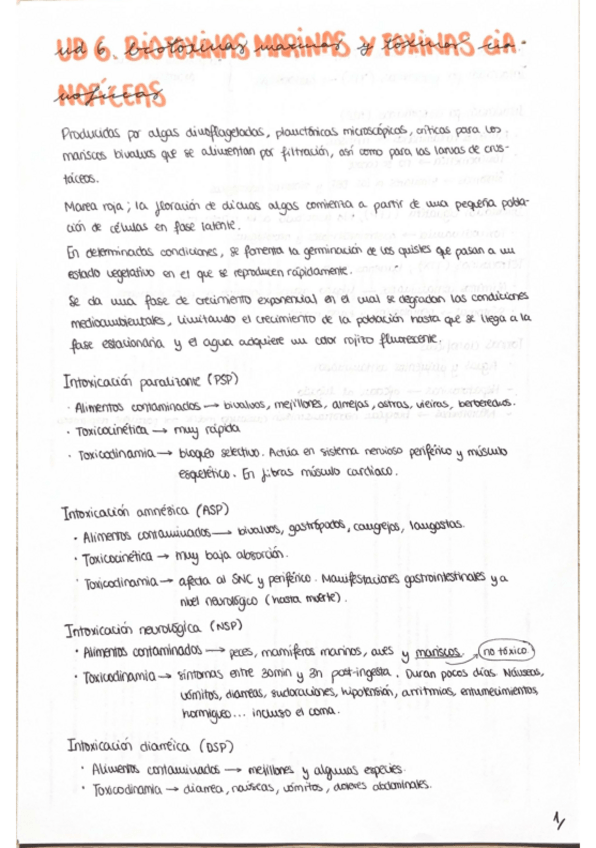 UD 6. BIOTOXINAS MARINAS Y TOXINAS CIA-
NOFÍCEAS
Producidas por algas dinoflageladas, planctónicas microscópicas, críticas para los
mariscos bivalvos que se alimentan por filtración, así como para las larvas de crus-
táceos.
Marea roja; la floración de dichas algas comienza a partir de una pequeña pobla-
ción de células en fase latente.
En determinadas condiciones, se fomenta la germinación de los quistes que pasan a un
estado vegetativo en el que se reproducen rápidamente.
Se da una fase de crecimiento exponencial en el cual se degradan las condiciones
medioambientales, limitando el crecimiento de la población hasta que se llega a la
fase estacionaria y el agua adquiere un color rojizo fluorescente.
Intoxicación paralizante (PSP)
· Alimentos contaminados → bivalvos, mejillones, almejas, ostras, vieiras, berberechos.
· Toxicocinética → muy rápida
· Toxicodinamia → bloqueo selectivo. Actúa en sistema nervioso periférico y músculo
esquelético. En fibras músculo cardíaco.
Intoxicación amnésica (ASP)
· Alimentos contaminados → bivalvos, gastrópodos, cangrejos, langostas.
· Toxicocinética → muy baja absorción.
· Toxicodinamia → afecta al SNC y periférico. Manifestaciones gastrointestinales y a
nivel neurológico (hasta muerte).
Intoxicación neurológica (NSP)
· Alimentos contaminados → peces, mamíferos marinos, aves y mariscos. no tóxico
· Toxicodinamia → síntomas entre 30min y 3h post-ingesta. Duran pocos días. Náuseas,
vómitos, diarreas, sudoraciones, hipotensión, arritmias, entumecimientos,
hormigueo... incluso el coma.
Intoxicación diarreica (DSP)
· Alimentos contaminados → mejillones y algunas especies.
· Toxicodinamia → diarrea, naúseas, vómitos, dolores abdominales.
1/